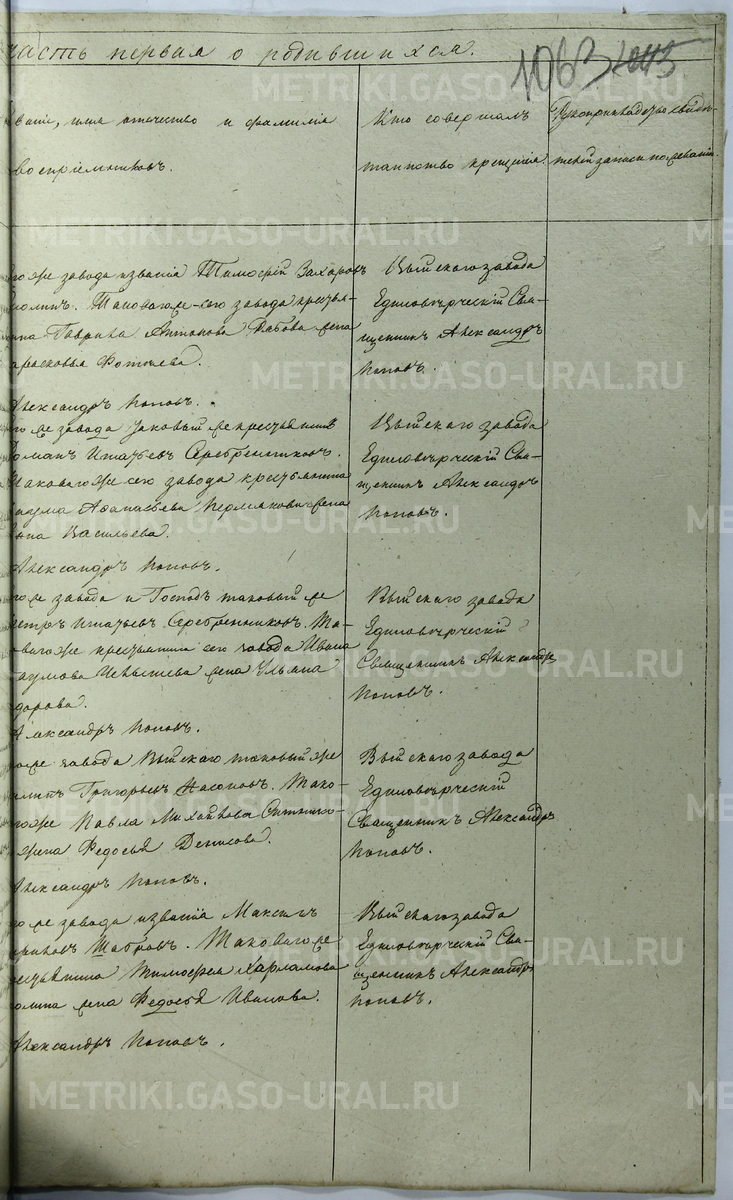 часть первая о родившихся.
1063
званіе, имя отчество и фамилія
воспріемниковъ.
Кто совершалъ
таинство крещенія
Рукоприкладство свидѣ-
телей записи по желанію
гоже завода и званія Тимофей Захаровъ
Таковагоже сего завода крестья-
нина Гаврила Антонова Рябова жена
арасковья Фотіева.
Александръ Поповъ.
Выйскаго завода
Единовѣрческій Свя-
щенникъ Александръ
Поповъ.
гоже завода таковый же крестьянинъ
оманъ Игнатьевъ Серебренниковъ.
Таковагоже сего завода крестьянина
аума Афанасьева Пермякова жена
нна Васильева.
Александръ Поповъ.
Выйскаго завода
Единовѣрческій Свя-
щенникъ Александръ
Поповъ.
гоже завода и Господъ таковый же
етръ Игнатьевъ Серебренниковъ. Та-
ковагоже крестьянина сего завода Ивана
аумова жена Ульяна
дорова.
Александръ Поповъ.
Выйскаго завода
Единовѣрческій
Священникъ Александръ
Поповъ.
гоже завода Выйскаго таковый же
илипъ Григорьевъ Насоновъ. Тако-
гоже Павла Михайлова
жена Федосья Денисова.
Александръ Поповъ.
Выйскаго завода
Единовѣрческій
Священникъ Александръ
Поповъ.
гоже завода и званія Максимъ
Шабровъ. Таковагоже
рестьянина Тимофея Харламова
жена Федосья Иванова.
Александръ Поповъ.
Выйскаго завода
Единовѣрческій Свя-
щенникъ Александръ
Поповъ.
METRIKI.GASO-URAL.RU
METRIKI.GASO-URAL.RU
METRIKI.GASO-URAL.RU
METRIKI.GASO-URAL.RU
METRIKI.GASO-URAL.RU
METRIKI.GASO-URAL.RU
METRIKI.GASO-URAL.RU
METRIKI.GASO-URAL.RU